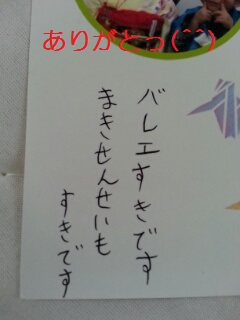 ありがとっ(^^)
バレエすきです
まきせんせいも
すきです